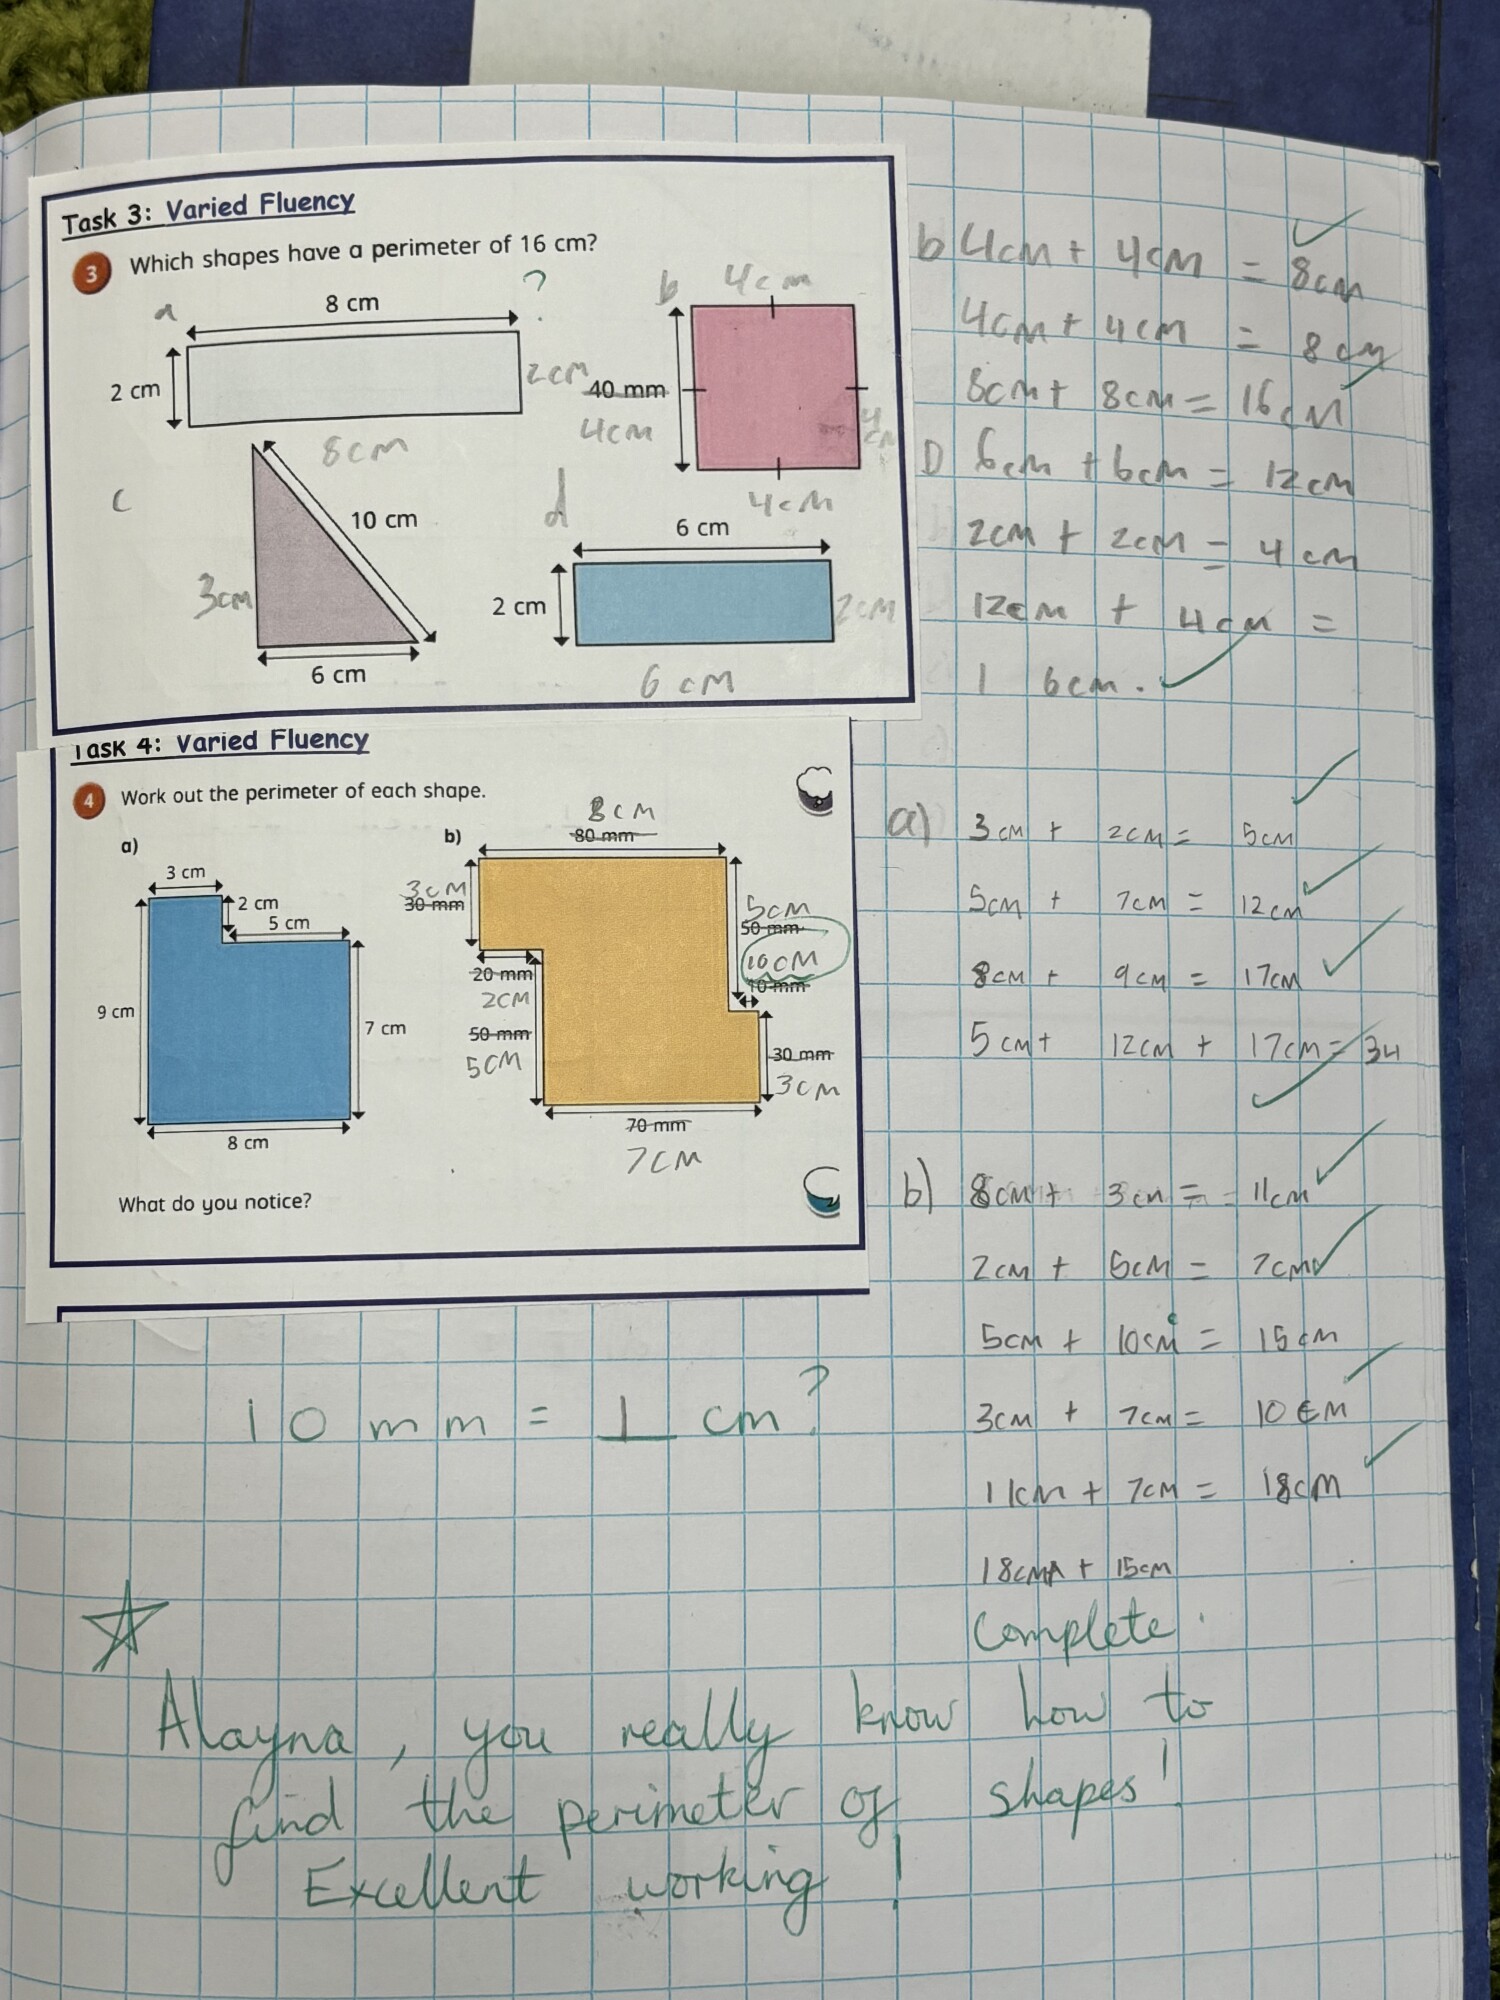 Task 3: Varied Fluency
3 Which shapes have a perimeter of 16 cm?
a
8 cm
?
2 cm
2cm
8cm
b
4cm
40 mm
4cm
4
cm
4cm
c
10 cm
3cm
6 cm
d
6 cm
2 cm
2cm
6 cm
b 4cm + 4cm = 8cm
4cm + 4cm = 8cm
8cm + 8cm = 16cm
D 6cm + 6cm = 12cm
2cm + 2cm = 4cm
12cm + 4cm =
16cm.
Task 4: Varied Fluency
4 Work out the perimeter of each shape.
a)
3 cm
2 cm
5 cm
9 cm
7 cm
8 cm
b)
8cm
80 mm
3cm
30 mm
5cm
50 mm
10cm
10 mm
20 mm
2cm
50 mm
5cm
30 mm
3cm
70 mm
7cm
What do you notice?
a) 3cm + 2cm = 5cm
5cm + 7cm = 12cm
8cm + 9cm = 17cm
5cm + 12cm + 17cm = 34
b) 8cm + 3cm = 11cm
2cm + 5cm = 7cm
5cm + 10cm = 15cm
3cm + 7cm = 10cm
11cm + 7cm = 18cm
18cm + 15cm
Complete.
10mm = 1 cm?
Alayna, you really know how to
find the perimeter of shapes!
Excellent working!